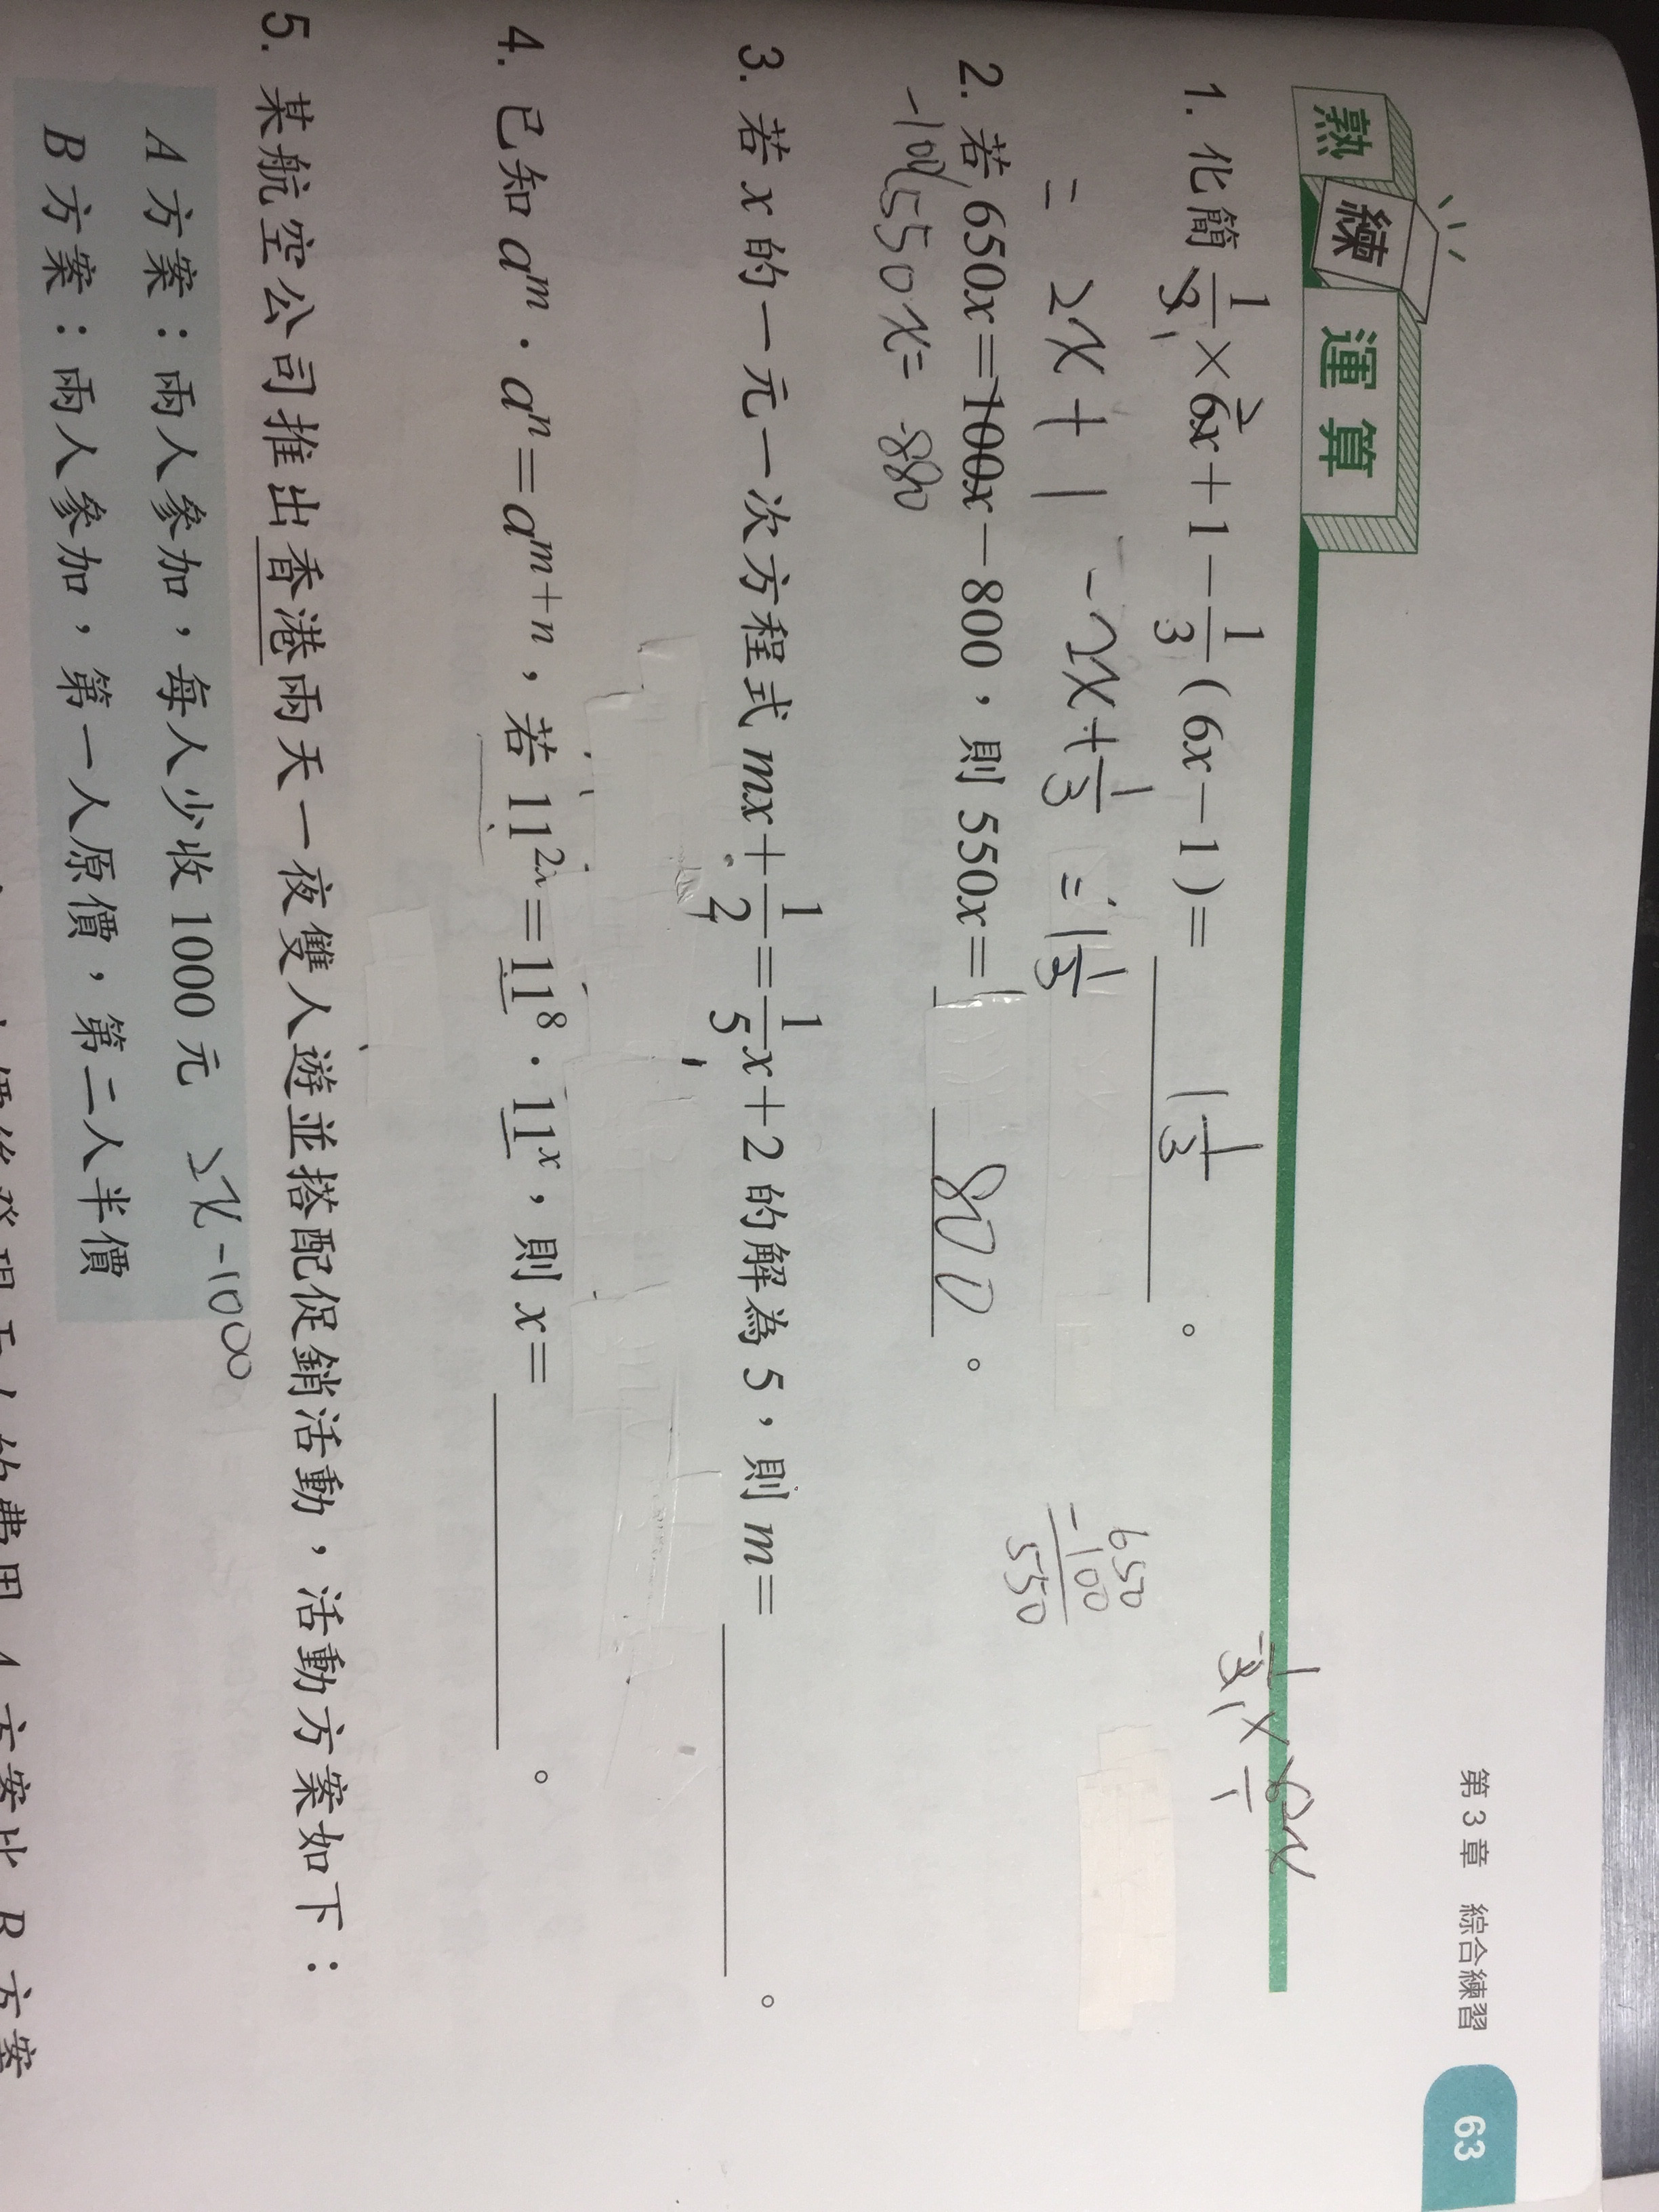 第 3 章　綜合練習　63
熟練運算
1. 化簡 1/3 × 6x + 1 − 1/3 (6x − 1) = 1 1/3 。
2 1
−1/3 1 × 6x/1
= 2x + 1 − 2x + 1/3 = 1 1/3
650
−100
550
2. 若 650x = 100x − 800，則 550x = 800 。
−100 550x = −880
3. 若 x 的一元一次方程式 mx + 1/2 = 1/5 x + 2 的解為 5，則 m = ＿＿＿ 。
4. 已知 aᵐ · aⁿ = aᵐ⁺ⁿ，若 11²ˣ = 11⁸ · 11ˣ，則 x = ＿＿＿ 。
5. 某航空公司推出香港兩天一夜雙人遊並搭配促銷活動，活動方案如下：
A 方案：兩人參加，每人少收 1000 元 2x − 1000
B 方案：兩人參加，第一人原價，第二人半價
的費用 A 方案比 B 方案